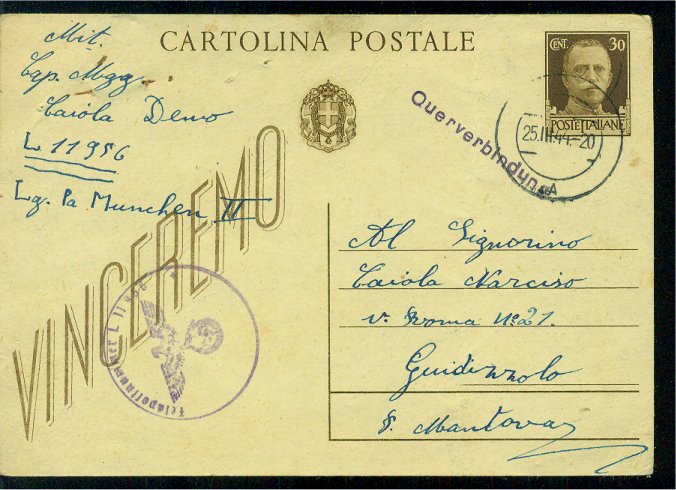 CARTOLINA POSTALE
Mit.
Cap. Magg.
Caiola Demo
L 11956
Lg. Pa München II
CENT. 30
POSTE ITALIANE
Querverbindung
25.III.44.-20
A
VINCEREMO
Al Signorino
Caiola Narciso
v. Roma N° 21.
Guidizzolo
P. Mantova
Feldpostnummer L 11956